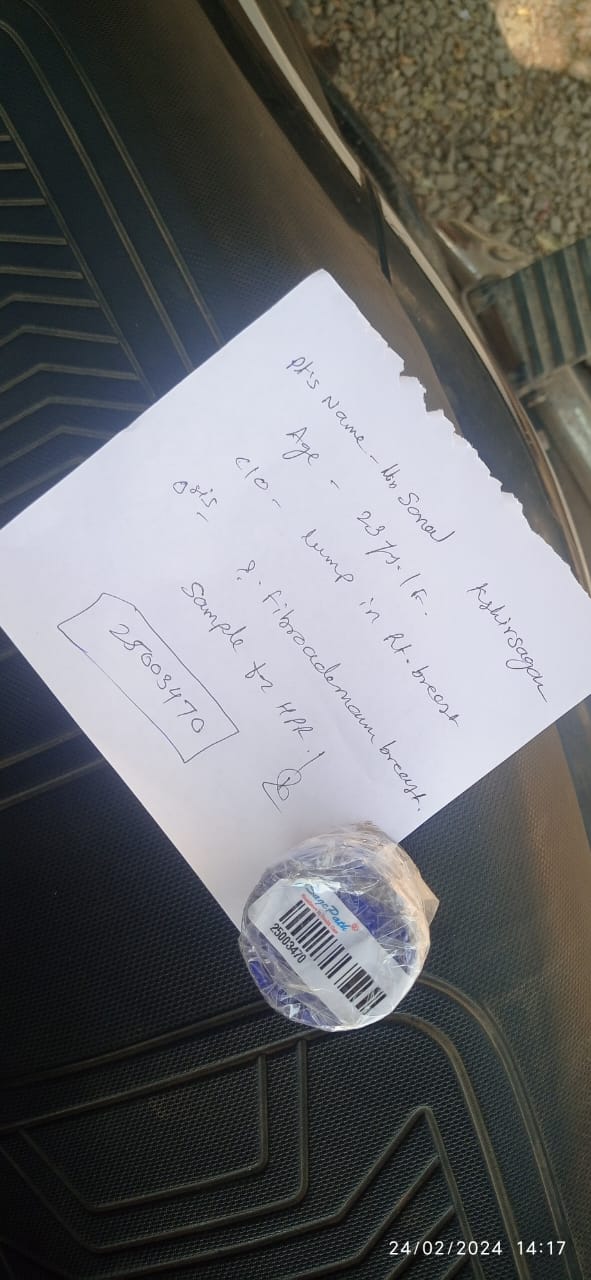 Pt's Name - Sonal Kshirsagar
Age - 23 ys. / F.
C/O - Lump in Rt. breast
? Fibroadenoma breast.
Sample for HPR.
25003470
SagePath
25003470
24/02/2024 14:17